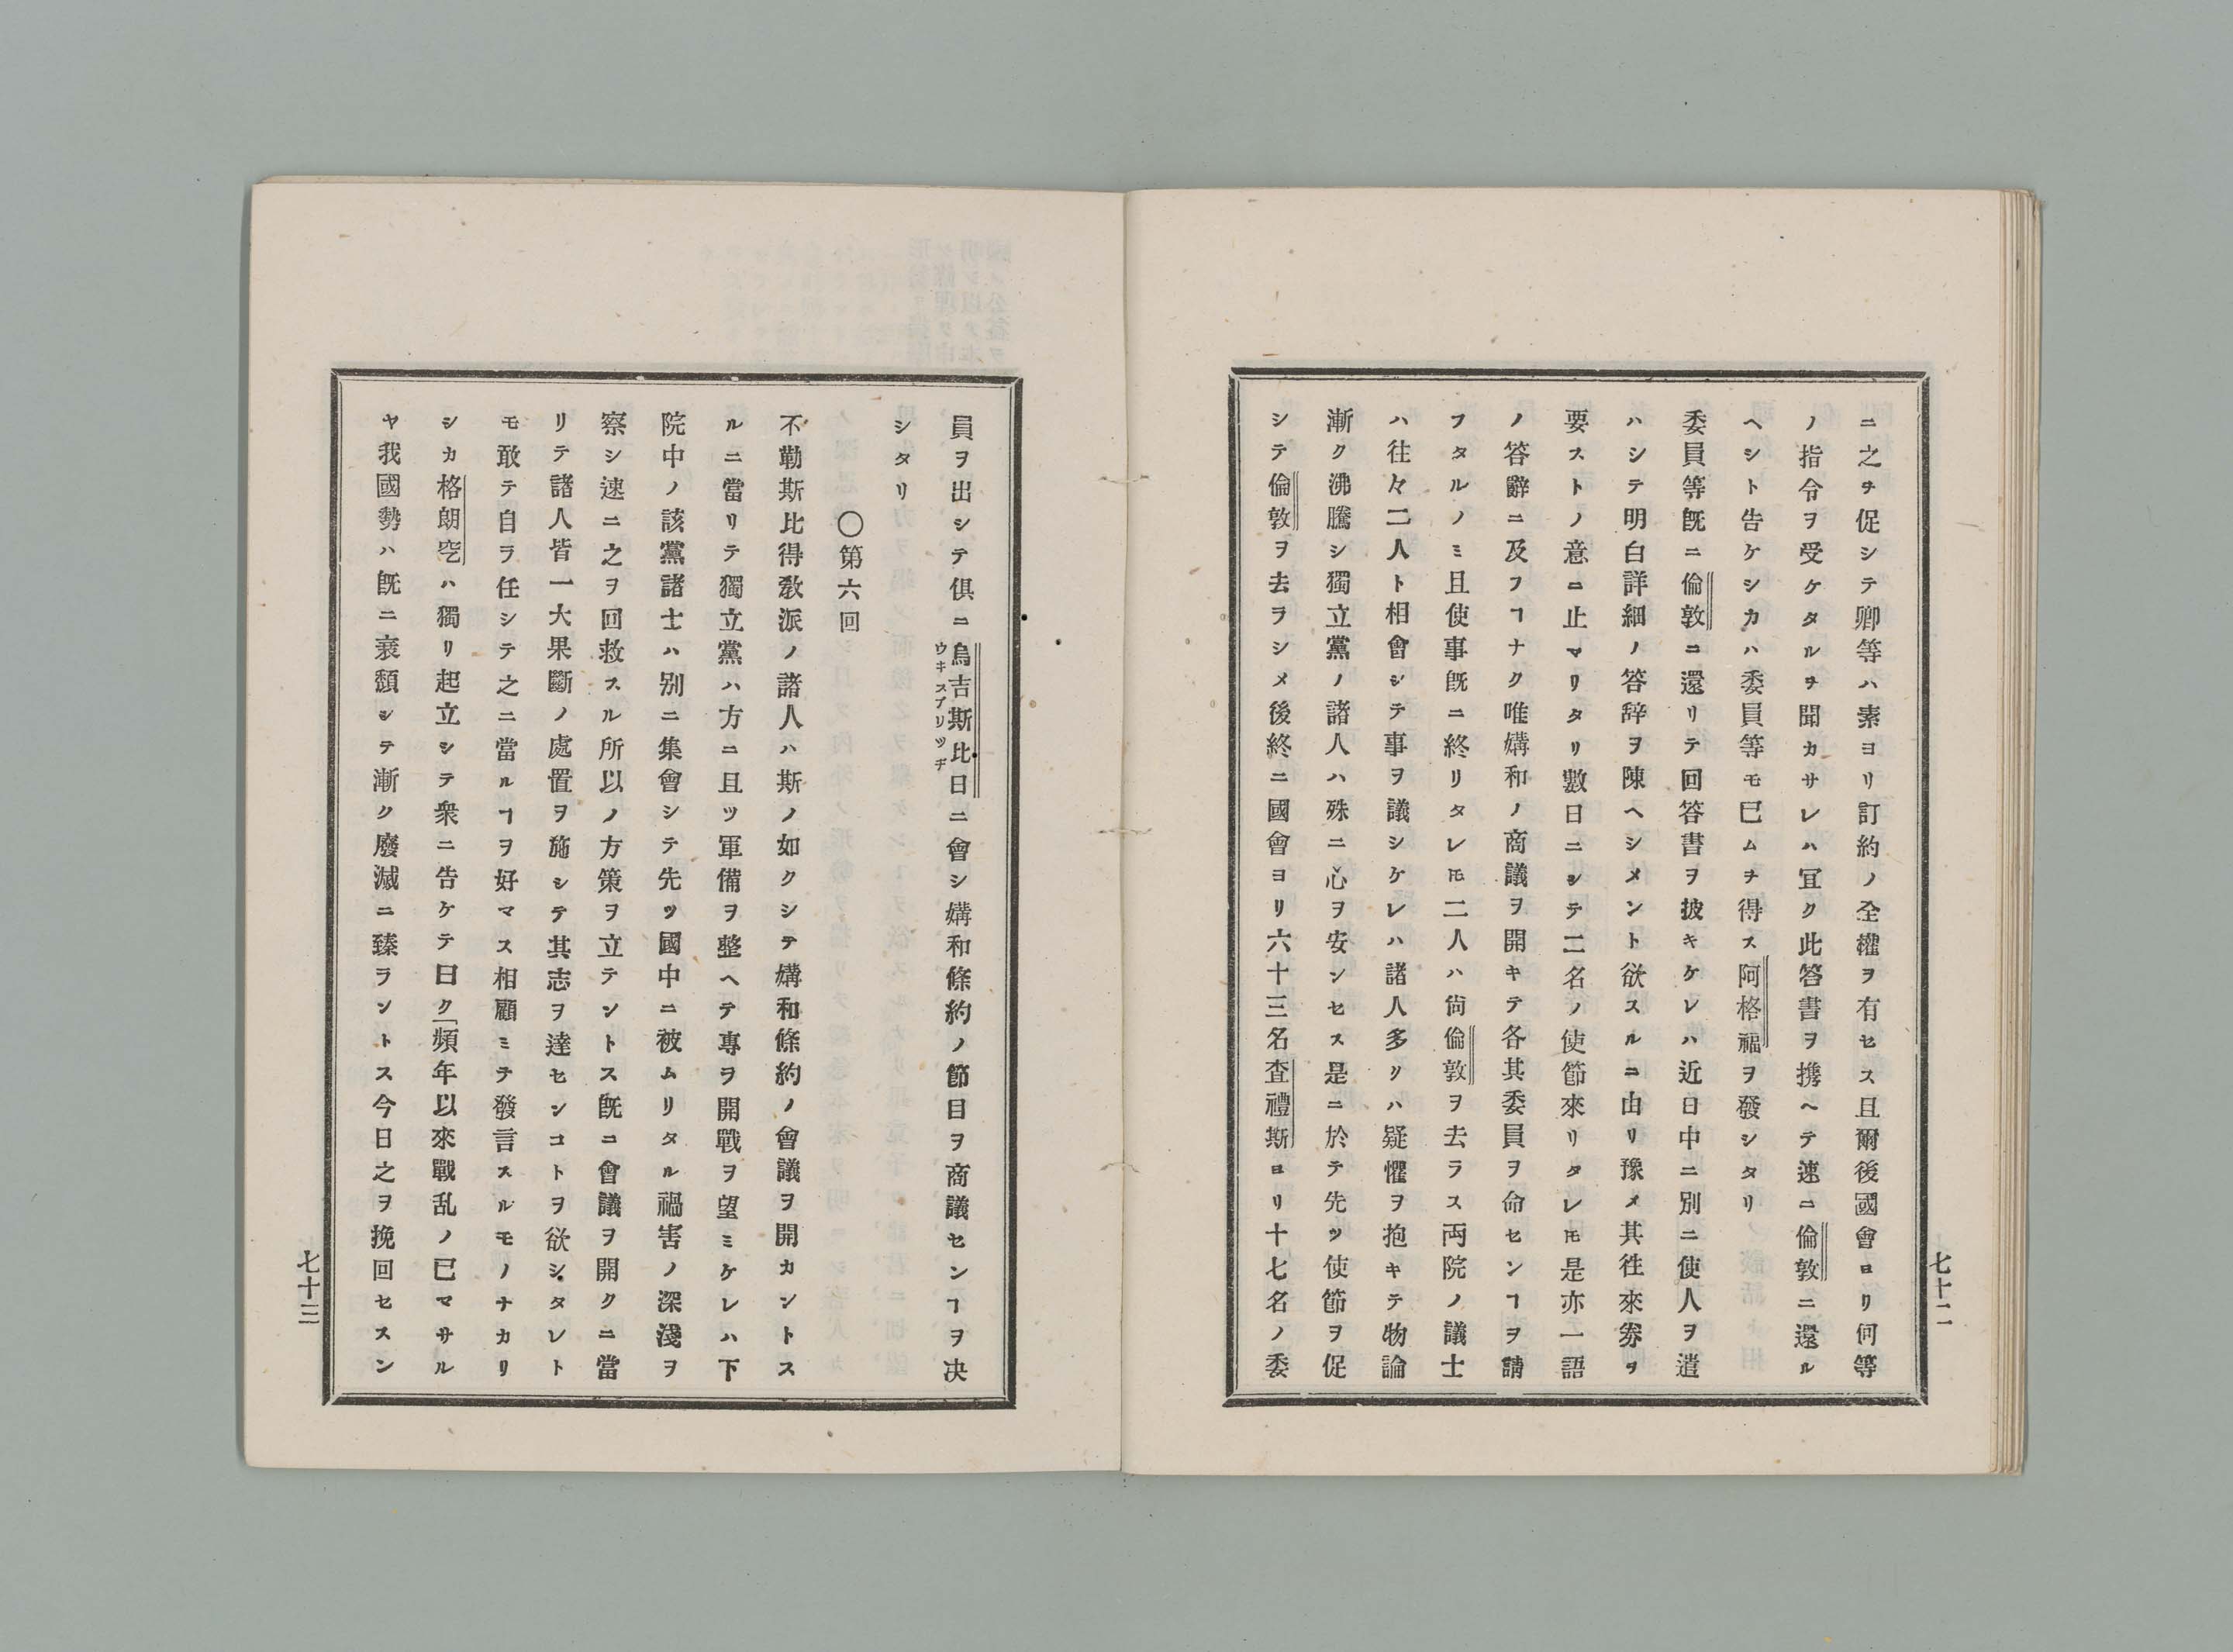 ニ之ヲ促シテ卿等ハ素ヨリ訂約ノ全權ヲ有セス且爾後國會ヨリ何等
ノ指令ヲ受ケタルヲ聞カサレハ宜ク此答書ヲ携ヘテ速ニ倫敦ニ還ル
ヘシト告ケシカハ委員等モ已ムヲ得ス阿格福ヲ發シタリ
委員等既ニ倫敦ニ還リテ回答書ヲ披キケレハ近日中ニ別ニ使人ヲ遣
ハシテ明白詳細ノ答辞ヲ陳ヘシメント欲スルニ由リ豫メ其徃來券ヲ
要ストノ意ニ止マリタリ數日ニシテ二名ノ使節來リタレ𪜈是亦一語
ノ答辭ニ及フヿナク唯媾和ノ商議ヲ開キテ各其委員ヲ命センヿヲ請
フタルノミ且使事既ニ終リタレ𪜈二人ハ尙倫敦ヲ去ラス両院ノ議士
ハ往々二人ト相會シテ事ヲ議シケレハ諸人多クハ疑懼ヲ抱キテ物論
漸ク沸騰シ獨立黨ノ諸人ハ殊ニ心ヲ安ンセス是ニ於テ先ツ使節ヲ促
シテ倫敦ヲ去ラシメ後終ニ國會ヨリ六十三名査禮斯ヨリ十七名ノ委
七十二
員ヲ出シテ俱ニ烏吉斯比日ニ會シ媾和條約ノ節目ヲ商議センヿヲ决
ウキスブリッヂ
シタリ
〇第六回
不勒斯比得敎派ノ諸人ハ斯ノ如クシテ媾和條約ノ會議ヲ開カントス
ルニ當リテ獨立黨ハ方ニ且ツ軍備ヲ整ヘテ專ヲ開戰ヲ望ミケレハ下
院中ノ該黨諸士ハ別ニ集會シテ先ツ國中ニ被ムリタル禍害ノ深淺ヲ
察シ速ニ之ヲ回救スル所以ノ方策ヲ立テントス既ニ會議ヲ開クニ當
リテ諸人皆一大果斷ノ處置ヲ施シテ其志ヲ達センコトヲ欲シタレト
モ敢テ自ラ任シテ之ニ當ルヿヲ好マス相顧ミテ發言スルモノナカリ
シカ格朗空ハ獨リ起立シテ衆ニ告ケテ曰ク「頻年以來戰乱ノ已マサル
ヤ我國勢ハ既ニ衰頽シテ漸ク廢滅ニ臻ラントス今日之ヲ挽回セスン
七十三